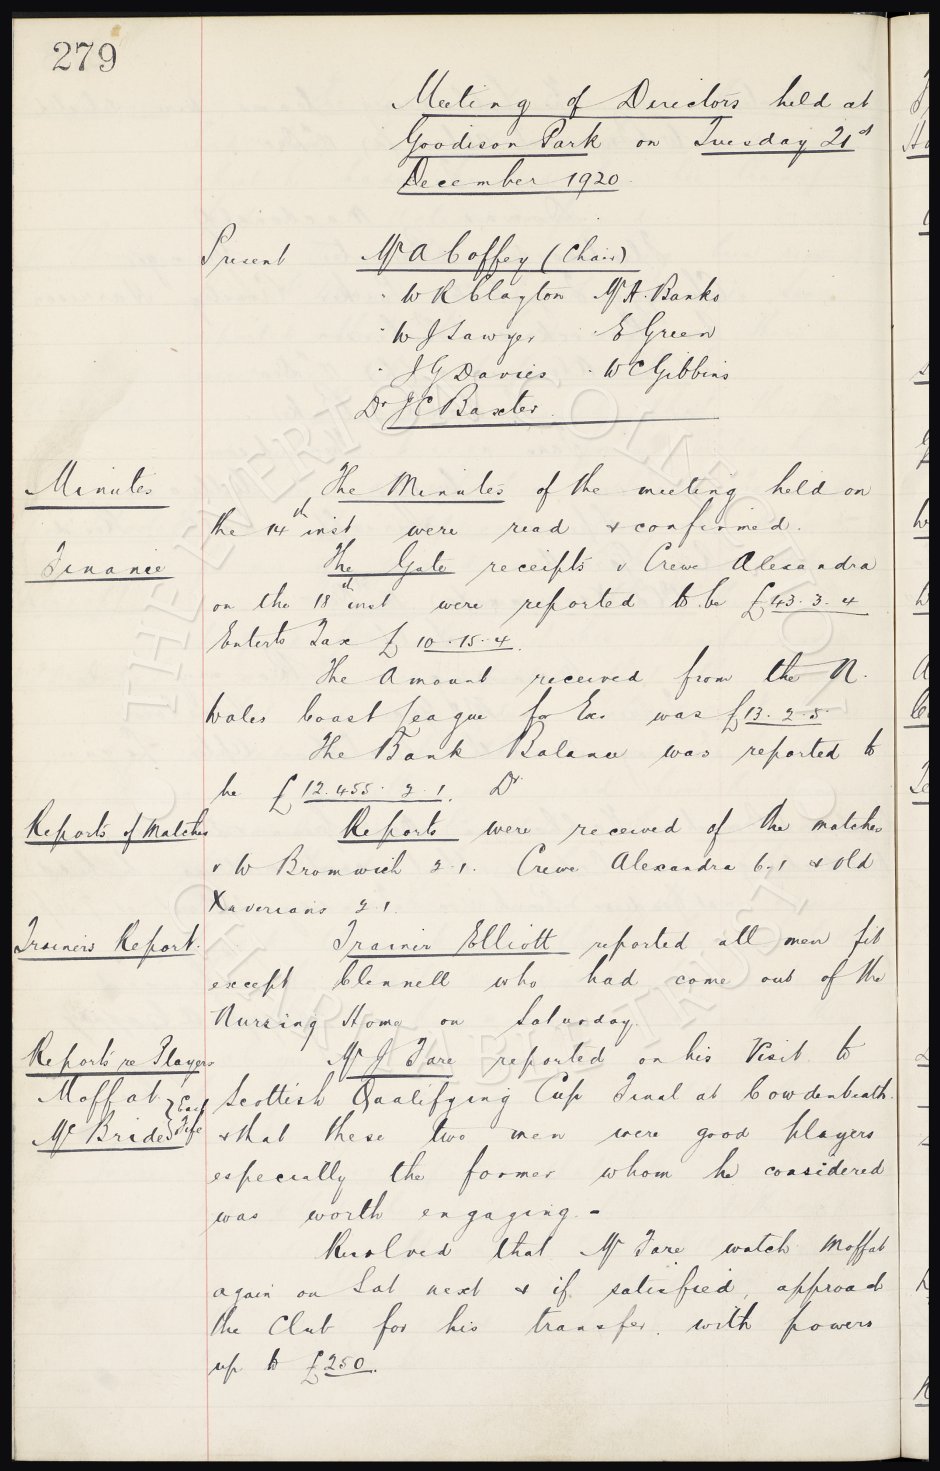 279
Meeting of Directors held at
Goodison Park on Tuesday 21st
December 1920
Present Mr A Coffey (Chair)
" W R Clayton Mr A. Banks
" W J Sawyer " E Green
" J G Davies " W C Gibbins
Dr J C Baxter.
Minutes The Minutes of the meeting held on
the 14th inst were read & confirmed.
Finance The Gate receipts v Crewe Alexandra
on the 18th inst were reported to be £43.3.4
Enterts Tax £10.15.4.
The Amount received from the N.
Wales Coast League for Exs was £13.2.5
The Bank Balance was reported to
be £12.455.2.1. Dr
Reports of Matches Reports were received of the matches
v W Bromwich 2-1. Crewe Alexandra 6-1 & Old
Xaverians 2-1.
Trainers Report. Trainer Elliott reported all men fit
except Clennell who had come out of the
Nursing Home on Saturday.
Reports re Players Mr J Fare reported on his Visit to
Moffat } East Scottish Qualifying Cup Final at Cowdenbeath.
McBride } Fife & that these two men were good players
especially the former whom he considered
was worth engaging.-
Resolved that Mr Fare watch Moffat
again on Sat next & if satisfied, approach
the Club for his transfer. with powers
up to £250.